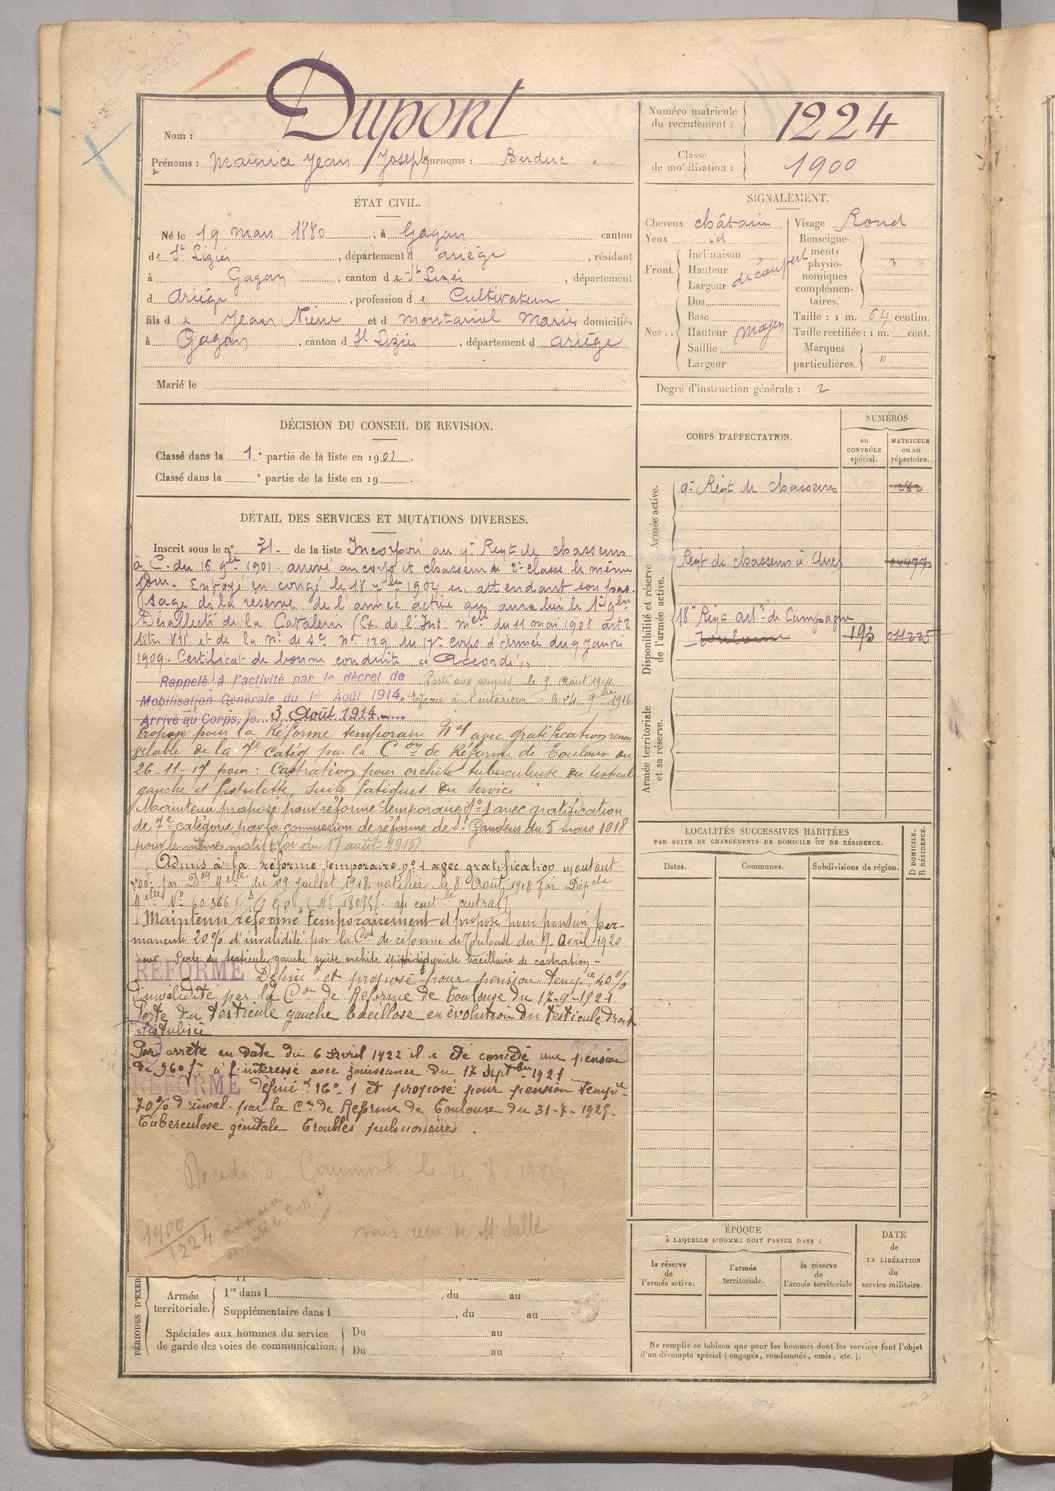 Nom : Dupont
Prénoms : Maurice Jean Joseph Surnoms : Burduc
Numéro matricule du recrutement : 1224
Classe de mobilisation : 1900
ÉTAT CIVIL.
Né le 19 mars 1880, à Gagan canton
de St Lizier, département d ariége, résidant
à Gagan, canton de St Lizier, département
d Ariége, profession de Cultivateur
fils de Jean Pierre et d Montariol Marie domiciliés
à Gagan, canton d St Lizier, département d ariége
Marié le
SIGNALEMENT.
Cheveux châtain
Yeux id
Front. Inclinaison
Hauteur découvert
Largeur
Nez. Dos
Base
Hauteur moyen
Saillie
Largeur
Visage Rond
Renseignements physionomiques complémentaires.
Taille : 1 m. 64 centim.
Taille rectifiée : 1 m. cent.
Marques particulières. "
Degré d'instruction générale : 2
DÉCISION DU CONSEIL DE REVISION.
Classé dans la 1e partie de la liste en 1901.
Classé dans la e partie de la liste en 19
DÉTAIL DES SERVICES ET MUTATIONS DIVERSES.
Inscrit sous le n° 31. de la liste Incorporé au 9e Regt de chasseurs
à C. du 16 9bre 1901. arrivé au corps et chasseur de 2e classe le même
jour. Envoyé en congé le 18 7bre 1904 en attendant son pas-
sage dans la reserve de l'armée active qui aura lieu le 1er 9bre
Désaffecté de la Cavalerie (Ex. de l'Inst. Melle du 11 mai 1908 art 2
titre VII et de la n. de Sce N° 129 du 17e Corps d'Armée du 9 Janvier
1909. Certificat de bonne conduite "Accordé".
Rappelé à l'activité par le décret de
Mobilisation Générale du 1er Août 1914.
Arrivé au Corps, le 3 Août 1914
Parti aux armées le 9 Août 1914
à l'intérieur le 24 9bre 1916
Proposé pour la Réforme temporaire N°1 avec gratification renou
velable de la 7e Catég. par la Con de Réforme de Toulouse du
26-11-17 pour : Castration pour orchite tuberculeuse du testicule
gauche et fistulette, suite fatigues du service
Maintenu proposé pour réforme temporaire n°1 avec gratification
de 7e catégorie par la commission de réforme de St Gaudens du 5 mars 1918
pour le même motif (loi du 17 août 1915)
Admis à la réforme temporaire n° 1 avec gratification montant
200f par Don Melle du 29 juillet 1918 notifiée le 8 Août 1918 par Dépche
Melle N° 60366
Maintenu réformé temporairement et proposé pour pension per-
manente 20% d'invalidité par la Con de réforme de Toulouse du 9 Avril 1920
pour Perte du testicule gauche suite orchite épididymite bacillaire de castration -
RÉFORMÉ Définif et proposé pour pension Tempre 40%
d'invalidité par la Con de Réforme de Toulouse du 17-9-1921
Perte du testicule gauche bacillose en évolution du testicule droit
fistulisée
Par arrêté en date du 6 Avril 1922 il a été concédé une pension
de 960f à l'intéressé avec jouissance du 17 Septbre 1921
RÉFORMÉ définif n° 1 et proposé pour pension Tempre
70% d'inval. par la Con de Réforme de Toulouse du 31-7-1925.
Tuberculose génitale Troubles pulmonaires.
Décédé à Caumont le 4 8 1925
1900
1224
CORPS D'AFFECTATION.
NUMÉROS
au CONTRÔLE spécial.
MATRICULE ou au répertoire.
Armée active.
9e Régt de chasseurs
Disponibilité et réserve de l'armée active.
Régt de chasseurs à Auch
18e Régt Artie de Campagne
Toulouse
193
Armée territoriale et sa réserve.
LOCALITÉS SUCCESSIVES HABITÉES
PAR SUITE DE CHANGEMENTS DE DOMICILE OU DE RÉSIDENCE.
Dates.
Communes.
Subdivisions de région.
D DOMICILE.
R RÉSIDENCE.
ÉPOQUE
À LAQUELLE L'HOMME DOIT PASSER DANS :
la réserve de l'armée active.
l'armée territoriale.
la réserve de l'armée territoriale
DATE
de
LA LIBÉRATION
du
service militaire.
PÉRIODES D'EXER
Armée territoriale.
1re dans l , du au
Supplémentaire dans l , du au
Spéciales aux hommes du service
de garde des voies de communication.
Du au
Du au
Ne remplir ce tableau que pour les hommes dont les services font l'objet
d'un décompte spécial (engagés, condamnés, omis, etc.).